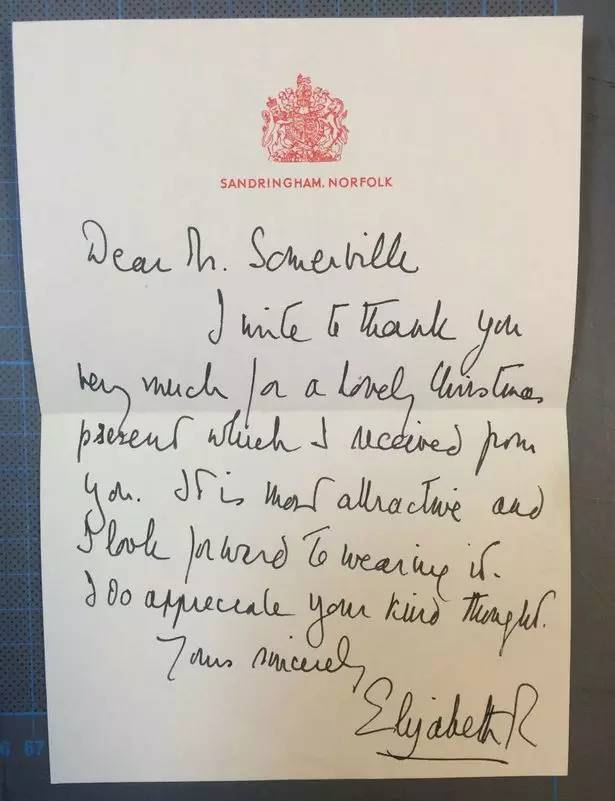 SANDRINGHAM, NORFOLK
Dear Mr. Somerville
I write to thank you
very much for a lovely Christmas
present which I received from
you. It is most attractive and
I look forward to wearing it.
I do appreciate your kind thought.
Yours sincerely
Elizabeth R
6 67